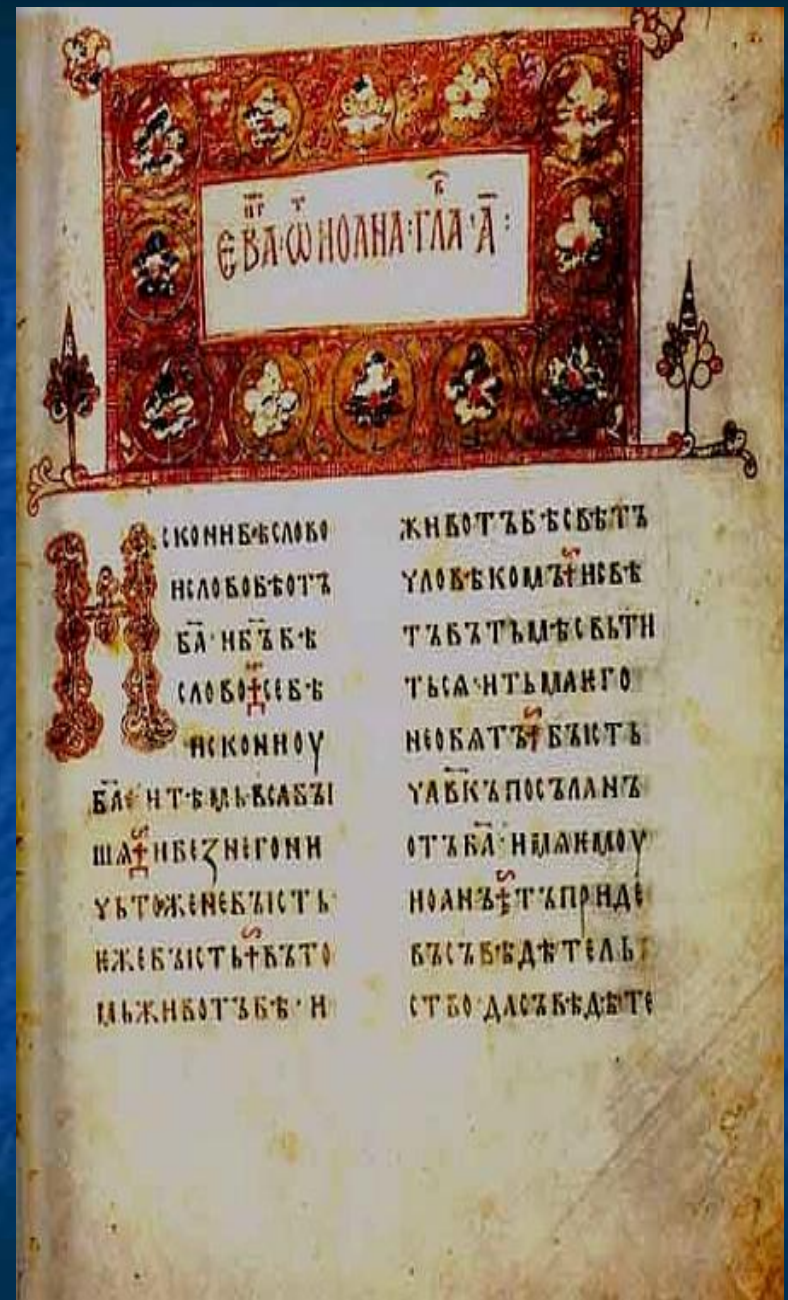 ЄВАнг·Ѿт·ИОАНА·ГЛАв·А҃:
ИСКОНИБѢСЛОВО
ИСЛОВОБѢОТЪ
БА҃·ИБЪ҃БѢ
СЛОВО СЕБѢ
ИСКОНИОУ
БА҃·ИТѢМЬВСѦБЫ
ШѦ ИБЕЗНЕГОНИ
ЧЬТОЖЕНЕБЪІСТЬ·
ѤЖЕБЪІСТЬ ВЪТО
МЬЖИВОТЪБѢ·И
ЖИВОТЪБѢСВѢТЪ
ЧЛОВѢКОМЪ ИСВѢ
ТЪВЪТЬМѢСВЬТИ
ТЬСѦ·ИТЬМАѤГО
НЕОБѦТЪ БЪІСТЬ
ЧЛ҃ВКЪПОСЪЛАНЪ
ОТЪБА҃·ИМѦѤМОУ
ИОАНЪ ТЪПРИДЕ
ВЪСЪВѢДѢТЕЛЬ
СТВО·ДАСЪВѢДѢТЕ